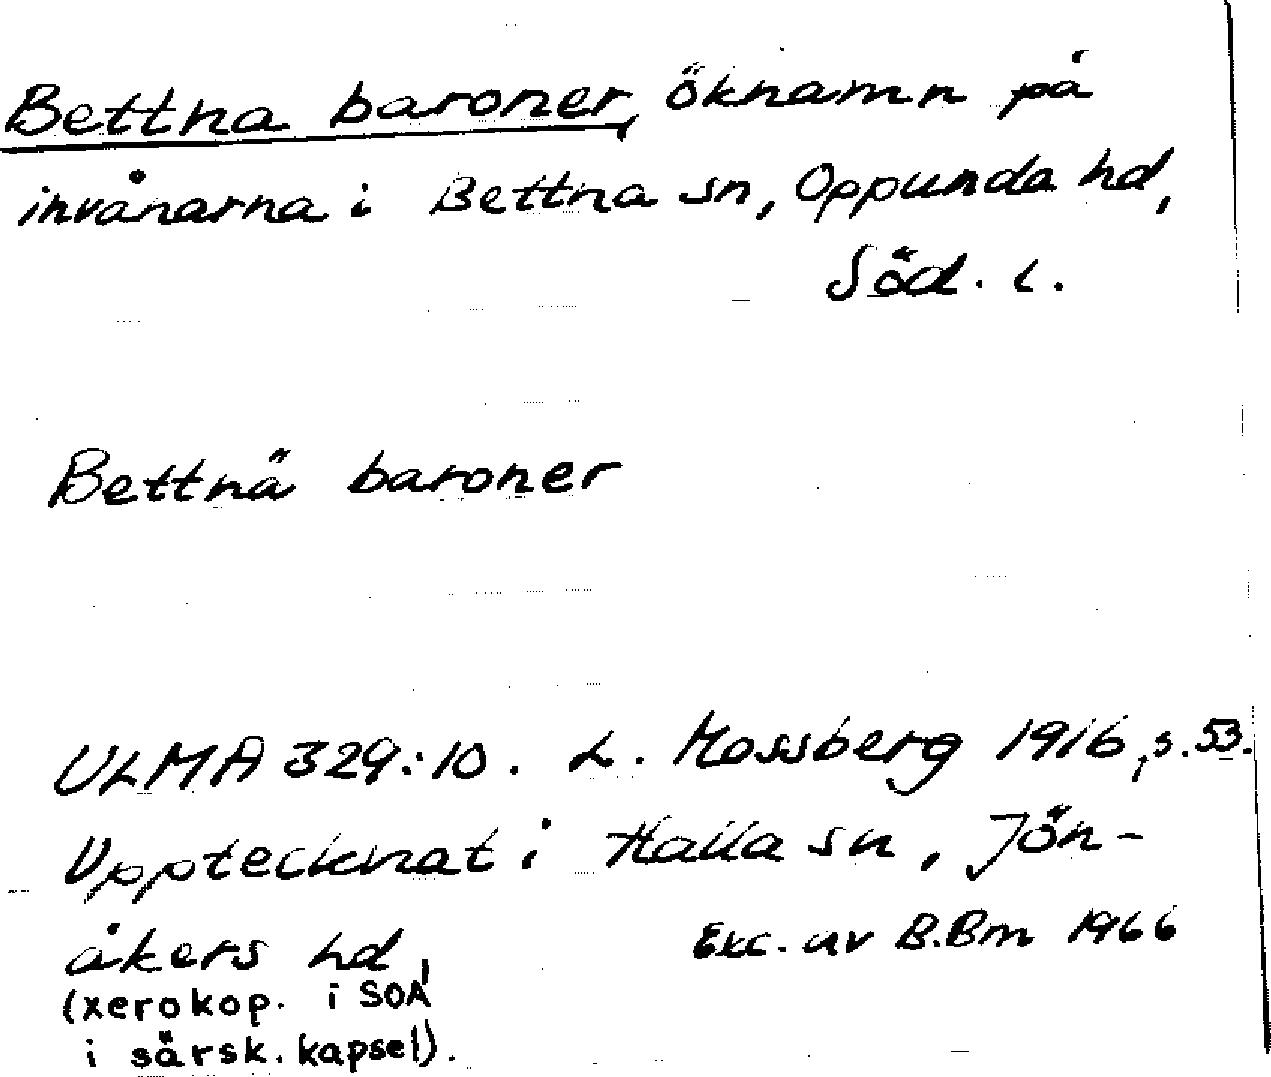 Bettna baroner, öknamn på
invånarna i Bettna sn, Oppunda hd,
Söd. l.
Bettnä baroner
ULMA 329:10. L. Mossberg 1916, s. 53.
Upptecknat i Halla sn, Jön-
åkers hd,
Exc. av B.Bm 1966
(xerokop. i SOA
i särsk. kapsel).